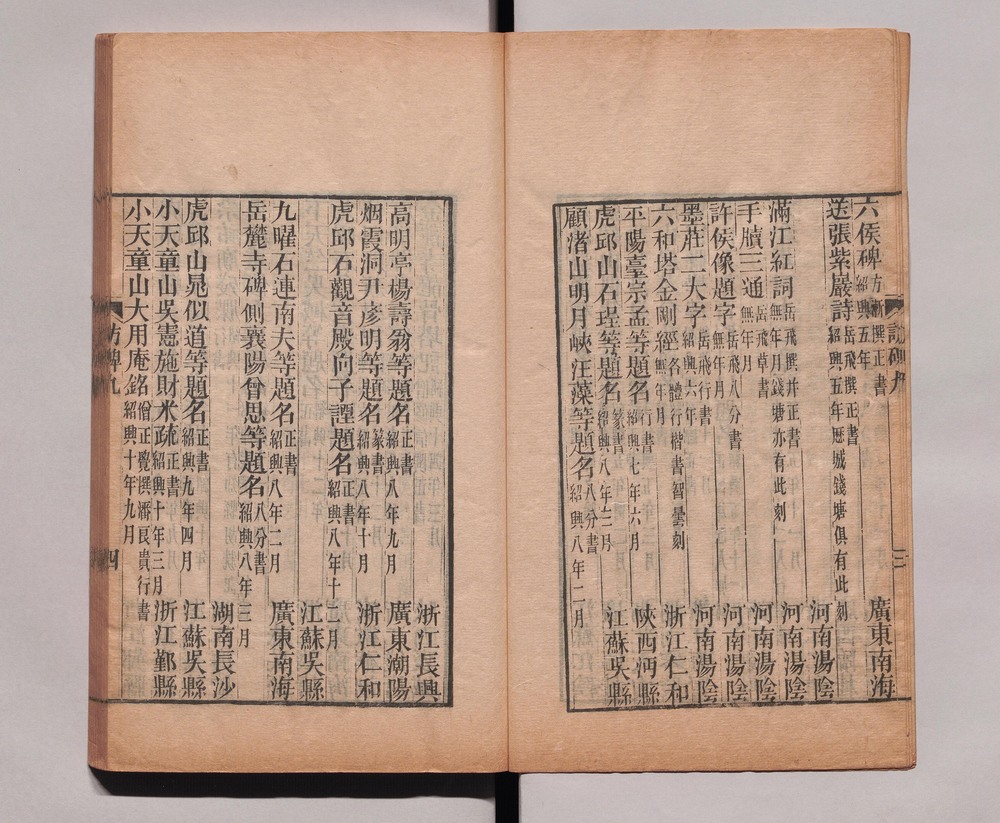 六侯碑 方漸撰正書 紹興五年 廣東南海
送張紫巖詩 岳飛撰正書 紹興五年歷城錢塘俱有此刻 河南湯陰
滿江紅詞 岳飛撰并正書 無年月錢塘亦有此刻 河南湯陰
手牘三通 岳飛草書 無年月 河南湯陰
許侯像題字 岳飛八分書 無年月 河南湯陰
墨莊二大字 岳飛行書 紹興六年 河南湯陰
六和塔金剛經 各體行楷書智曇刻 無年月 浙江仁和
平陽臺宗孟等題名 行書 紹興七年六月 陝西沔縣
虎邱山石珵等題名 篆書 紹興八年三月 江蘇吳縣
顧渚山明月峽汪藻等題名 八分書 紹興八年二月
訪碑九
三
浙江長興
高明亭楊壽翁等題名 正書 紹興八年九月 廣東潮陽
烟霞洞尹彥明等題名 篆書 紹興八年十月 浙江仁和
虎邱石觀音殿向子諲題名 正書 紹興八年十二月
江蘇吳縣
九曜石連南夫等題名 正書 紹興八年二月 廣東南海
岳麓寺碑側襄陽曾思等題名 八分書 紹興八年三月
湖南長沙
虎邱山晁似道等題名 正書 紹興九年四月 江蘇吳縣
小天童山吳憲施財米疏 正書 紹興十年三月 浙江鄞縣
小天童山大用庵銘 僧正覺撰潛艮貴行書 紹興十年九月
訪碑九
四